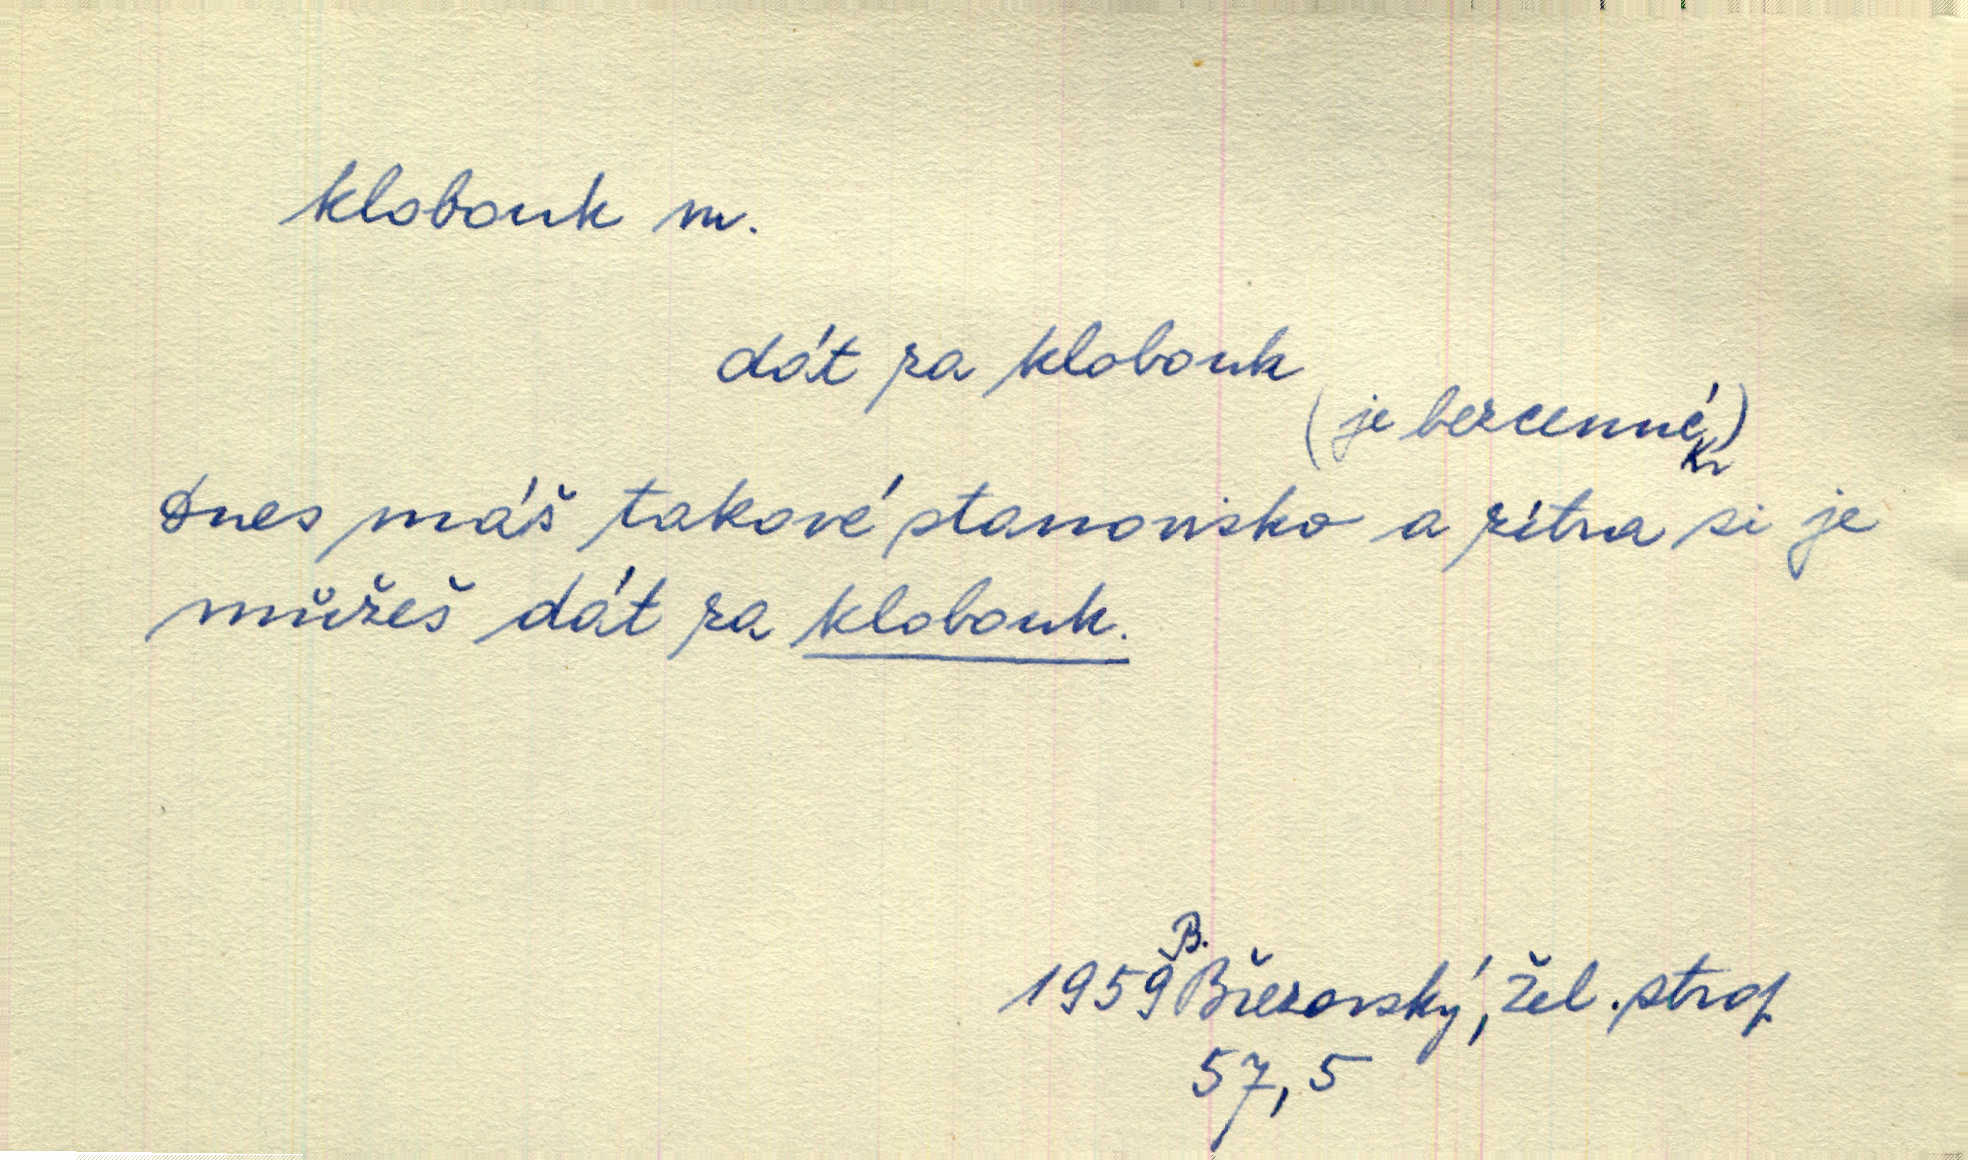 klobouk m.
dát za klobouk
(je bezcenné)
Kr
Dnes máš takové stanovisko a zítra si je
můžeš dát za klobouk.
B.
1959 Březovský, Žel. strop
57,5